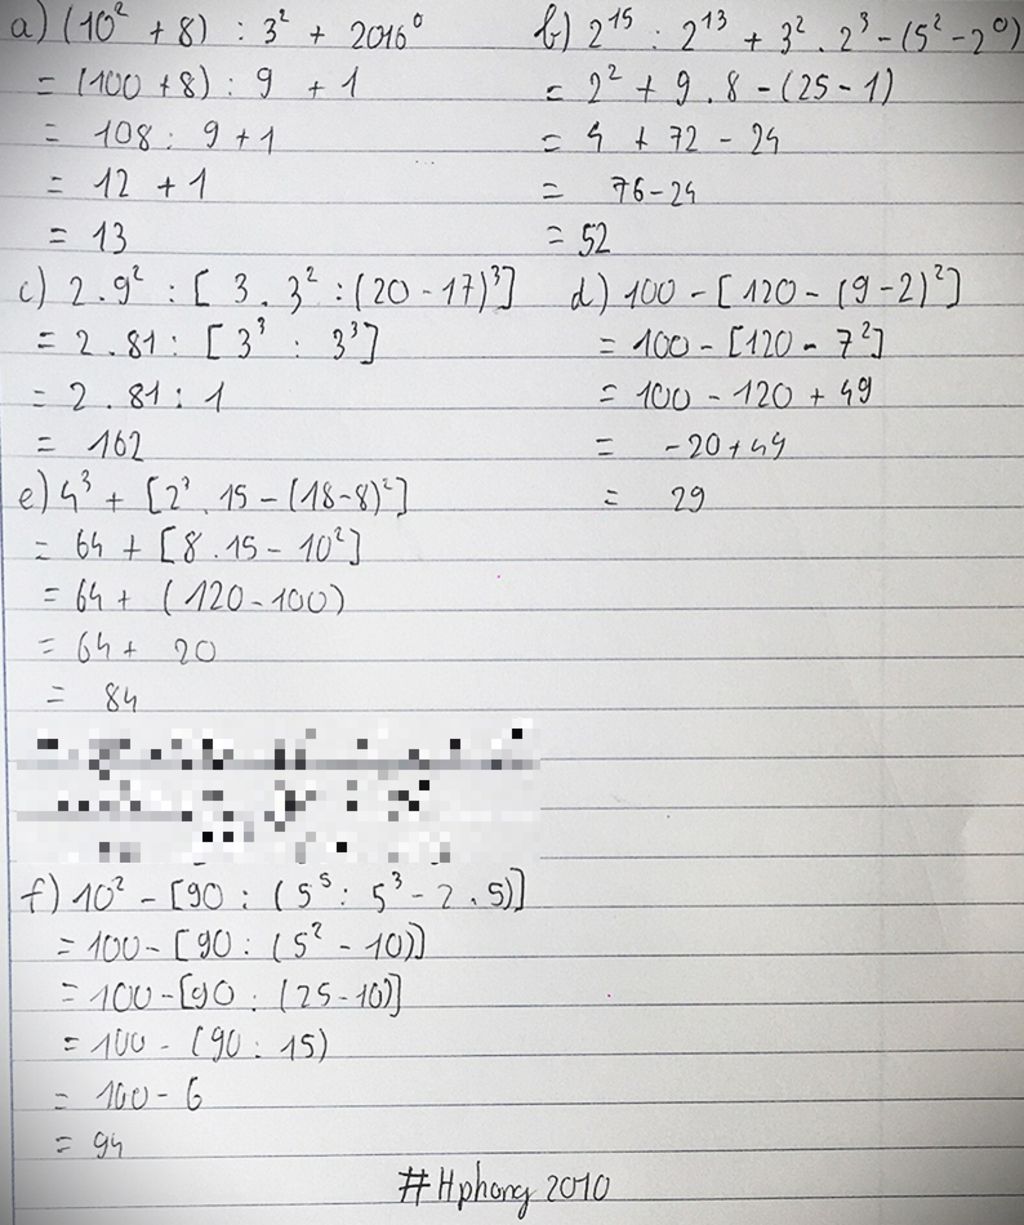 a) (10² + 8) : 3² + 2016⁰
= (100 + 8) : 9 + 1
= 108 : 9 + 1
= 12 + 1
= 13
b) 2¹⁵ : 2¹³ + 3² . 2³ - (5² - 2⁰)
= 2² + 9 . 8 - (25 - 1)
= 4 + 72 - 24
= 76 - 24
= 52
c) 2 . 9² : [ 3 . 3² : (20 - 17)³]
= 2 . 81 : [3³ : 3³]
= 2 . 81 : 1
= 162
d) 100 - [120 - (9 - 2)²]
= 100 - [120 - 7²]
= 100 - 120 + 49
= -20 + 49
= 29
e) 4³ + [2³ . 15 - (18 - 8)²]
= 64 + [8 . 15 - 10²]
= 64 + (120 - 100)
= 64 + 20
= 84
f) 10² - [90 : (5⁵ : 5³ - 2 . 5)]
= 100 - [90 : (5² - 10)]
= 100 - [90 : (25 - 10)]
= 100 - (90 : 15)
= 100 - 6
= 94
# Hphong 2010